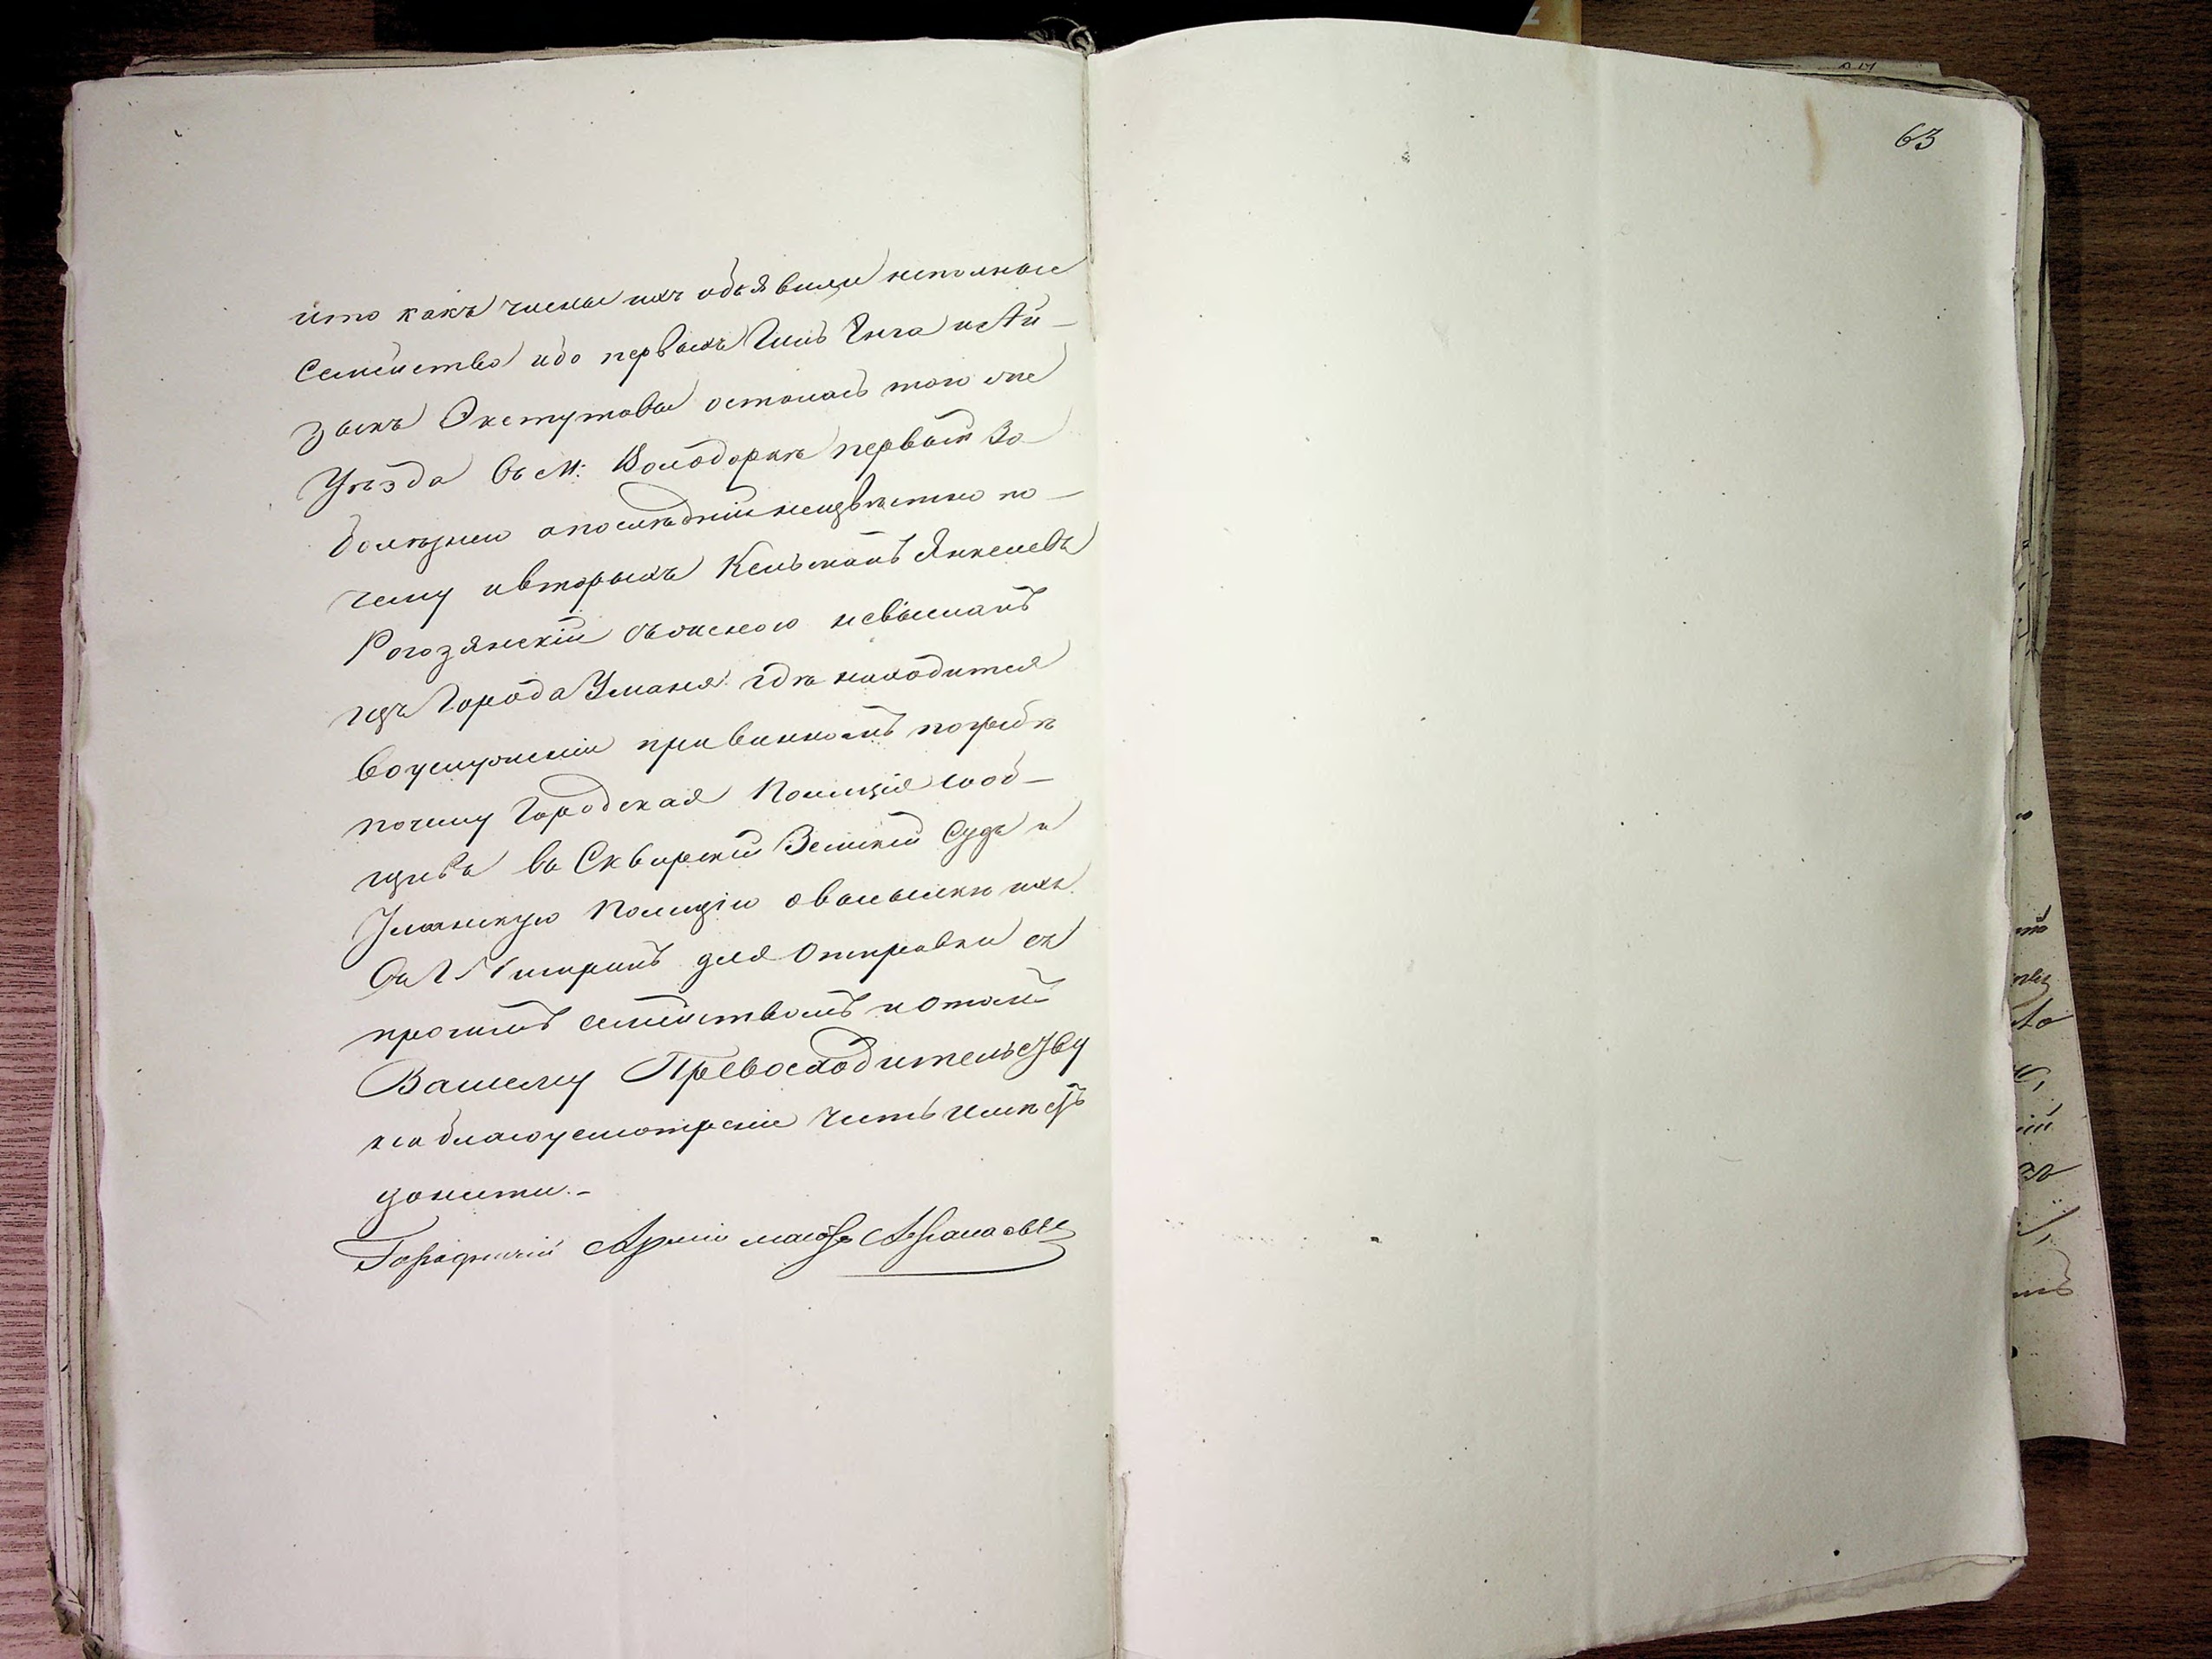 63
что какъ члены ихъ объявили неполные
семейство ибо первыхъ Гиль Энга и Ай-
зыкъ Окстутовы остались того же
Уѣзда въ м: Володаркѣ первый за
болѣзнею а послѣдній неизвѣстно по-
чему и вторыхъ Кельманъ Янкелевъ
Рогозянскій съ женою невысланъ
изъ Города Уманя гдѣ находится
въ услуженіи при винномъ погребѣ
почему Городская Полиція сооб-
щивъ въ Сквирскій Земскій Судъ и
Уманскую Полицію о высылкѣ ихъ
въ для отправки съ
прочимъ семействомъ и о томъ
Вашему Превосходительству
на благоусмотреніе честь имѣетъ
донести.-
Городничій Арміи маіоръ Афанасьевъ